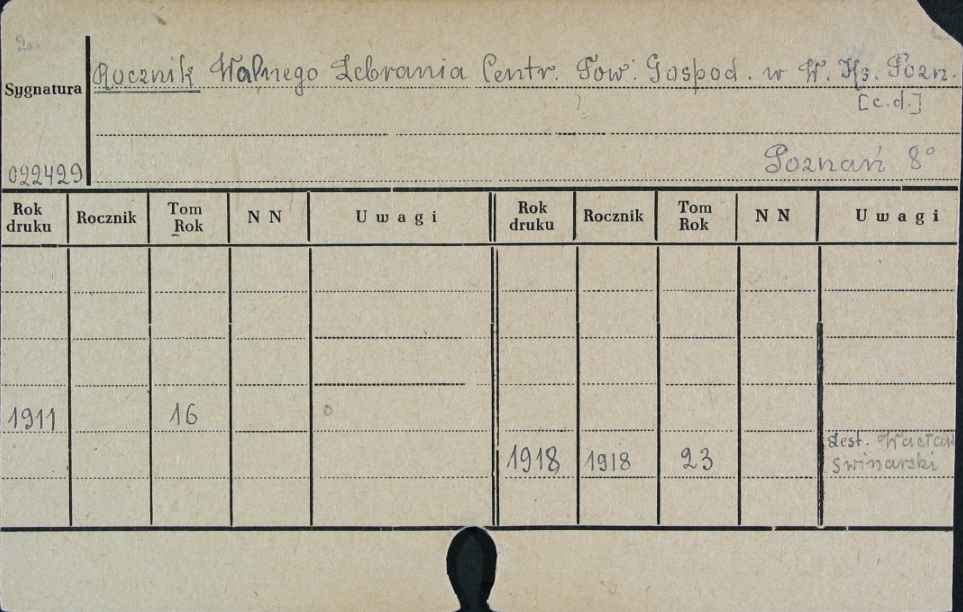 2.
Rocznik Walnego Zebrania Centr. Tow. Gospod. w W. Ks. Pozn.
Sygnatura
[c.d.]
Poznań 8°
022429
Rok druku Rocznik Tom Rok N N Uwagi Rok druku Rocznik Tom Rok N N Uwagi
1911 16
1918 1918 23 Zest. Wacław
Swinarski